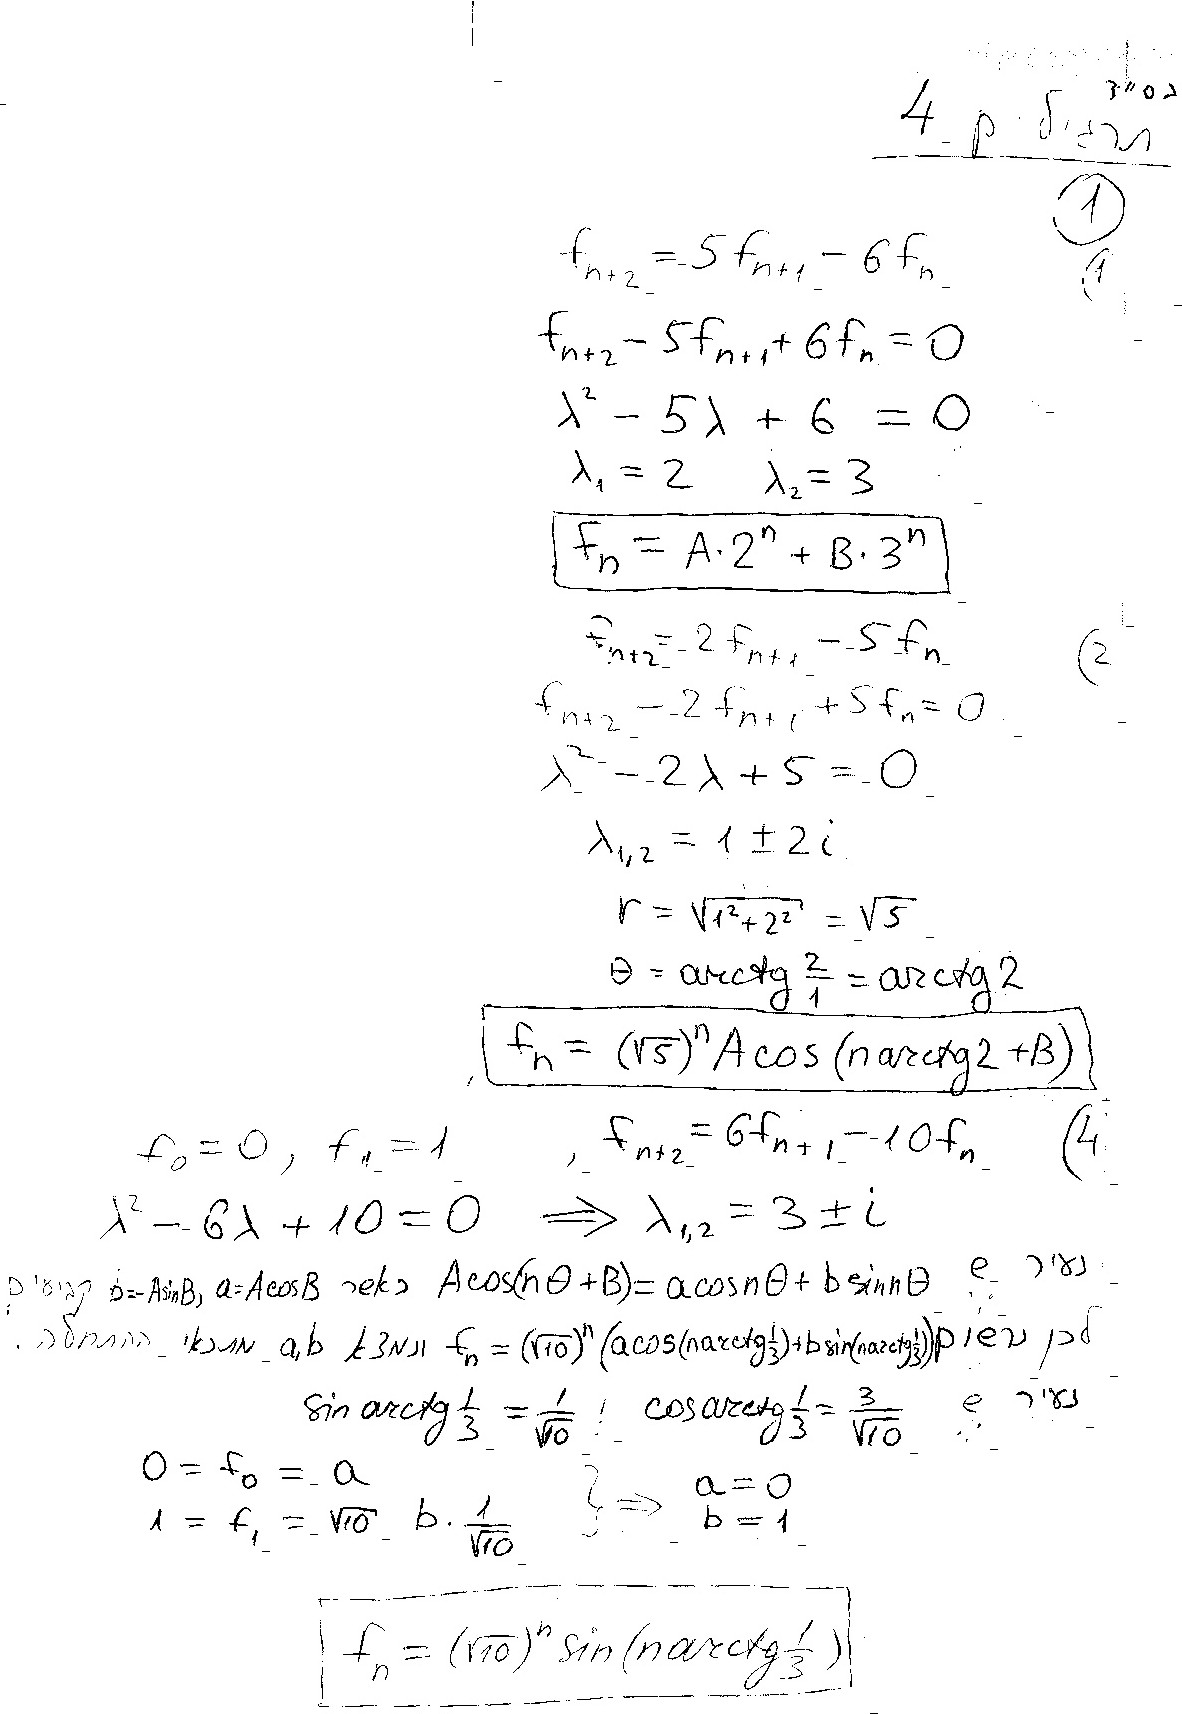 בס"ד
תרגיל 4
①
(1
f_{n+2} = 5f_{n+1} - 6f_n
f_{n+2} - 5f_{n+1} + 6f_n = 0
λ² - 5λ + 6 = 0
λ₁ = 2 λ₂ = 3
f_n = A·2ⁿ + B·3ⁿ
(2 f_{n+2} = 2f_{n+1} - 5f_n
f_{n+2} - 2f_{n+1} + 5f_n = 0
λ² - 2λ + 5 = 0
λ_{1,2} = 1 ± 2i
r = √(1²+2²) = √5
θ = arctg 2/1 = arctg 2
f_n = (√5)ⁿ A cos(n arctg 2 + B)
(4 f_{n+2} = 6f_{n+1} - 10f_n , f₀ = 0, f₁ = 1
λ² - 6λ + 10 = 0 ⟹ λ_{1,2} = 3 ± i
נעיר ש A cos(nθ+B) = a cos nθ + b sin nθ כאשר a = A cos B, b = -A sin B קבועים
לכן נרשום f_n = (√10)ⁿ (a cos(n arctg 1/3) + b sin(n arctg 1/3)) ונמצא a,b מתנאי ההתחלה.
נעיר ש cos arctg 1/3 = 3/√10 ; sin arctg 1/3 = 1/√10
0 = f₀ = a
1 = f₁ = √10 b · 1/√10 } ⟹ a = 0
b = 1
f_n = (√10)ⁿ sin(n arctg 1/3)